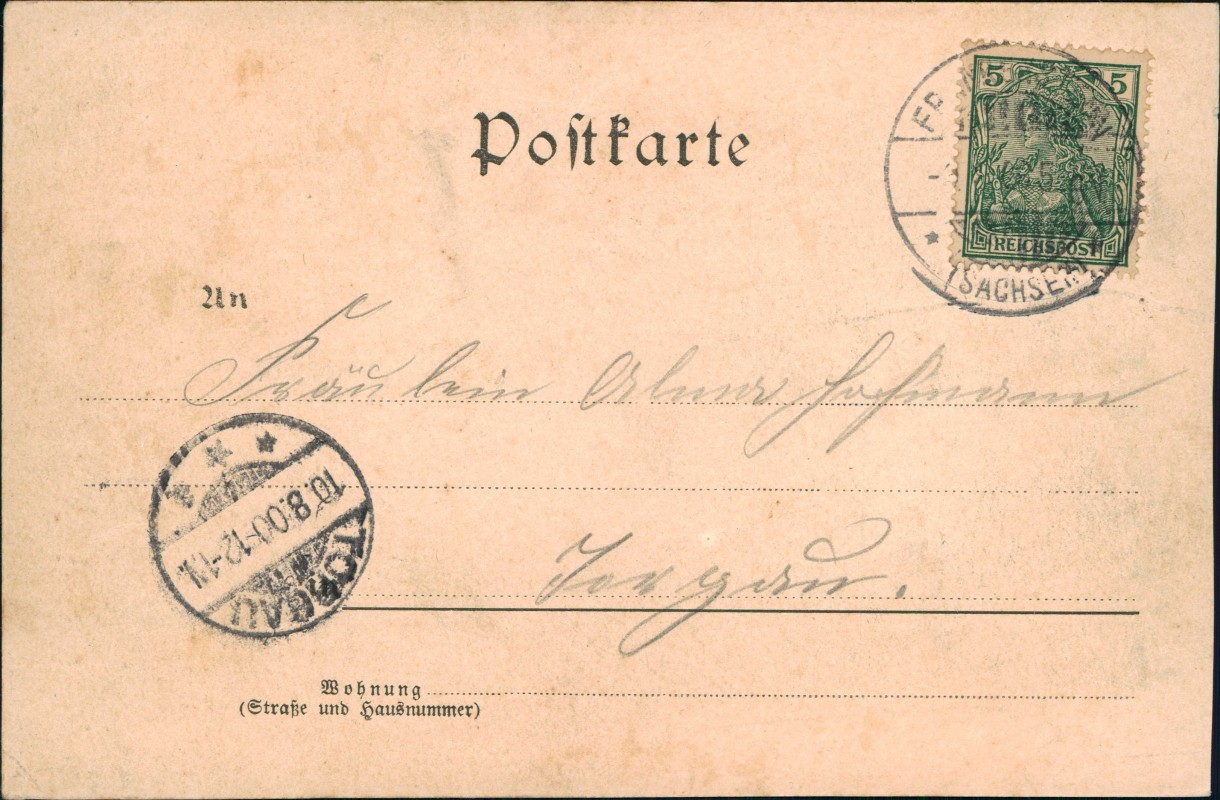 Postkarte
5 5
REICHSPOST
(SACHSEN)
An
Fräulein Alma Hofmann
10.8.00.12-1N.
TORGAU
Torgau.
Wohnung
(Straße und Hausnummer)